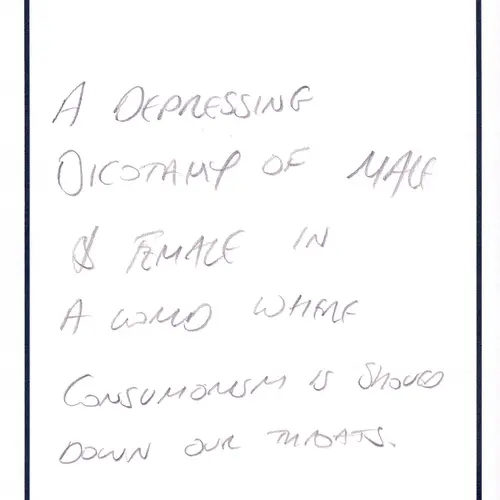 A DEPRESSING
DICOTAMY OF MALE
& FEMALE IN
A WORLD WHERE
CONSUMORISM IS SHOVED
DOWN OUR THROATS.